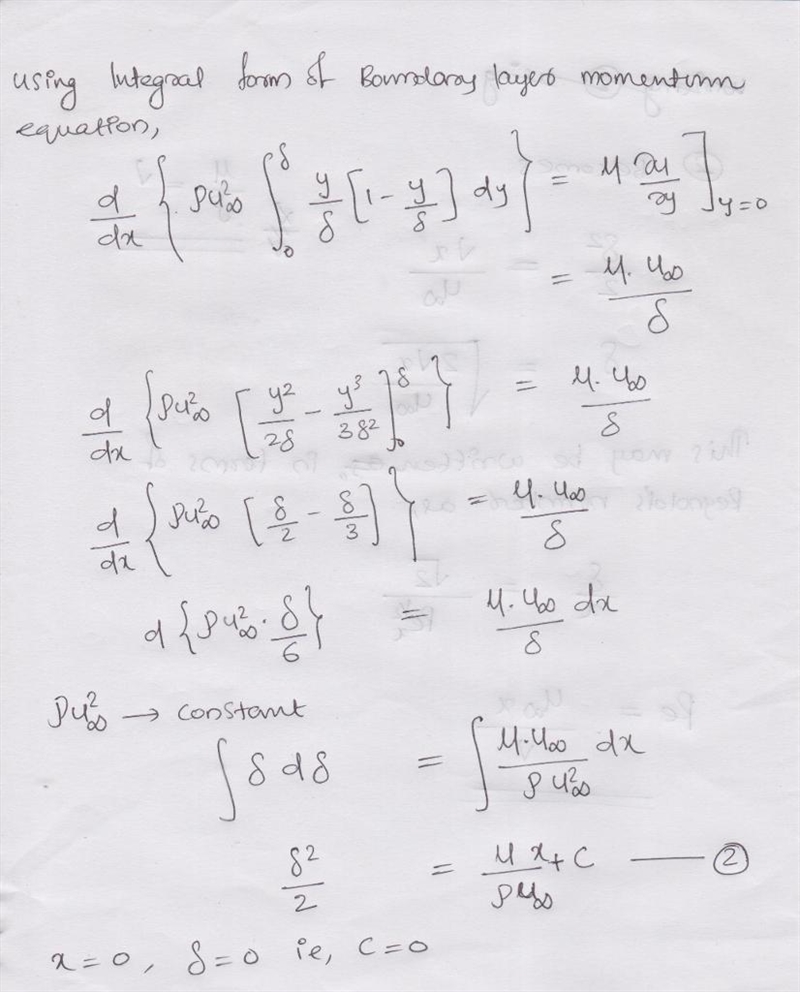 using Integral form of Boundary layer momentum
equation,
d/dx { ρu∞² ∫₀^δ y/δ [1 - y/δ] dy } = μ ∂u/∂y ]y=0
= μ.u∞/δ
d/dx { ρu∞² [ y²/2δ - y³/3δ² ]₀^δ } = μ.u∞/δ
d/dx { ρu∞² [ δ/2 - δ/3 ] } = μ.u∞/δ
d { ρu∞² . δ/6 } = μ.u∞/δ dx
ρu∞² → constant
∫ δ dδ = ∫ μ.u∞/ρu∞² dx
δ²/2 = μx/ρu∞ + C — ②
x=0, δ=0 ie, C=0